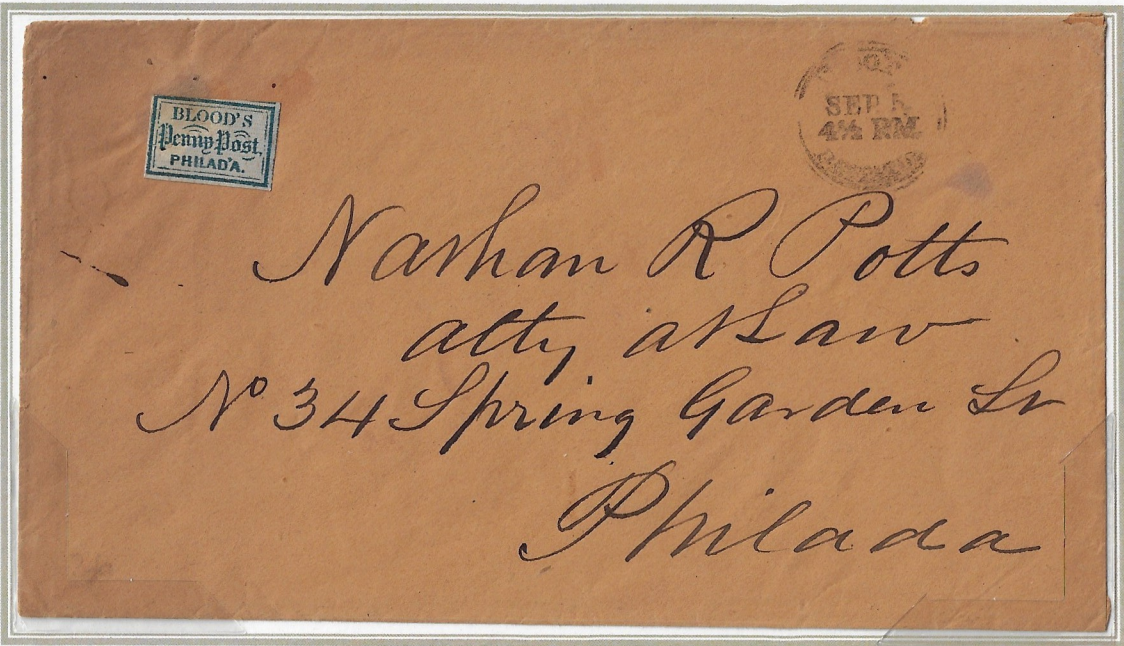 BLOOD'S
Penny Post,
PHILAD'A.
SEP. 5
4½ P.M.
Nathan R Potts
atty at Law
No 34 Spring Garden St
Philada